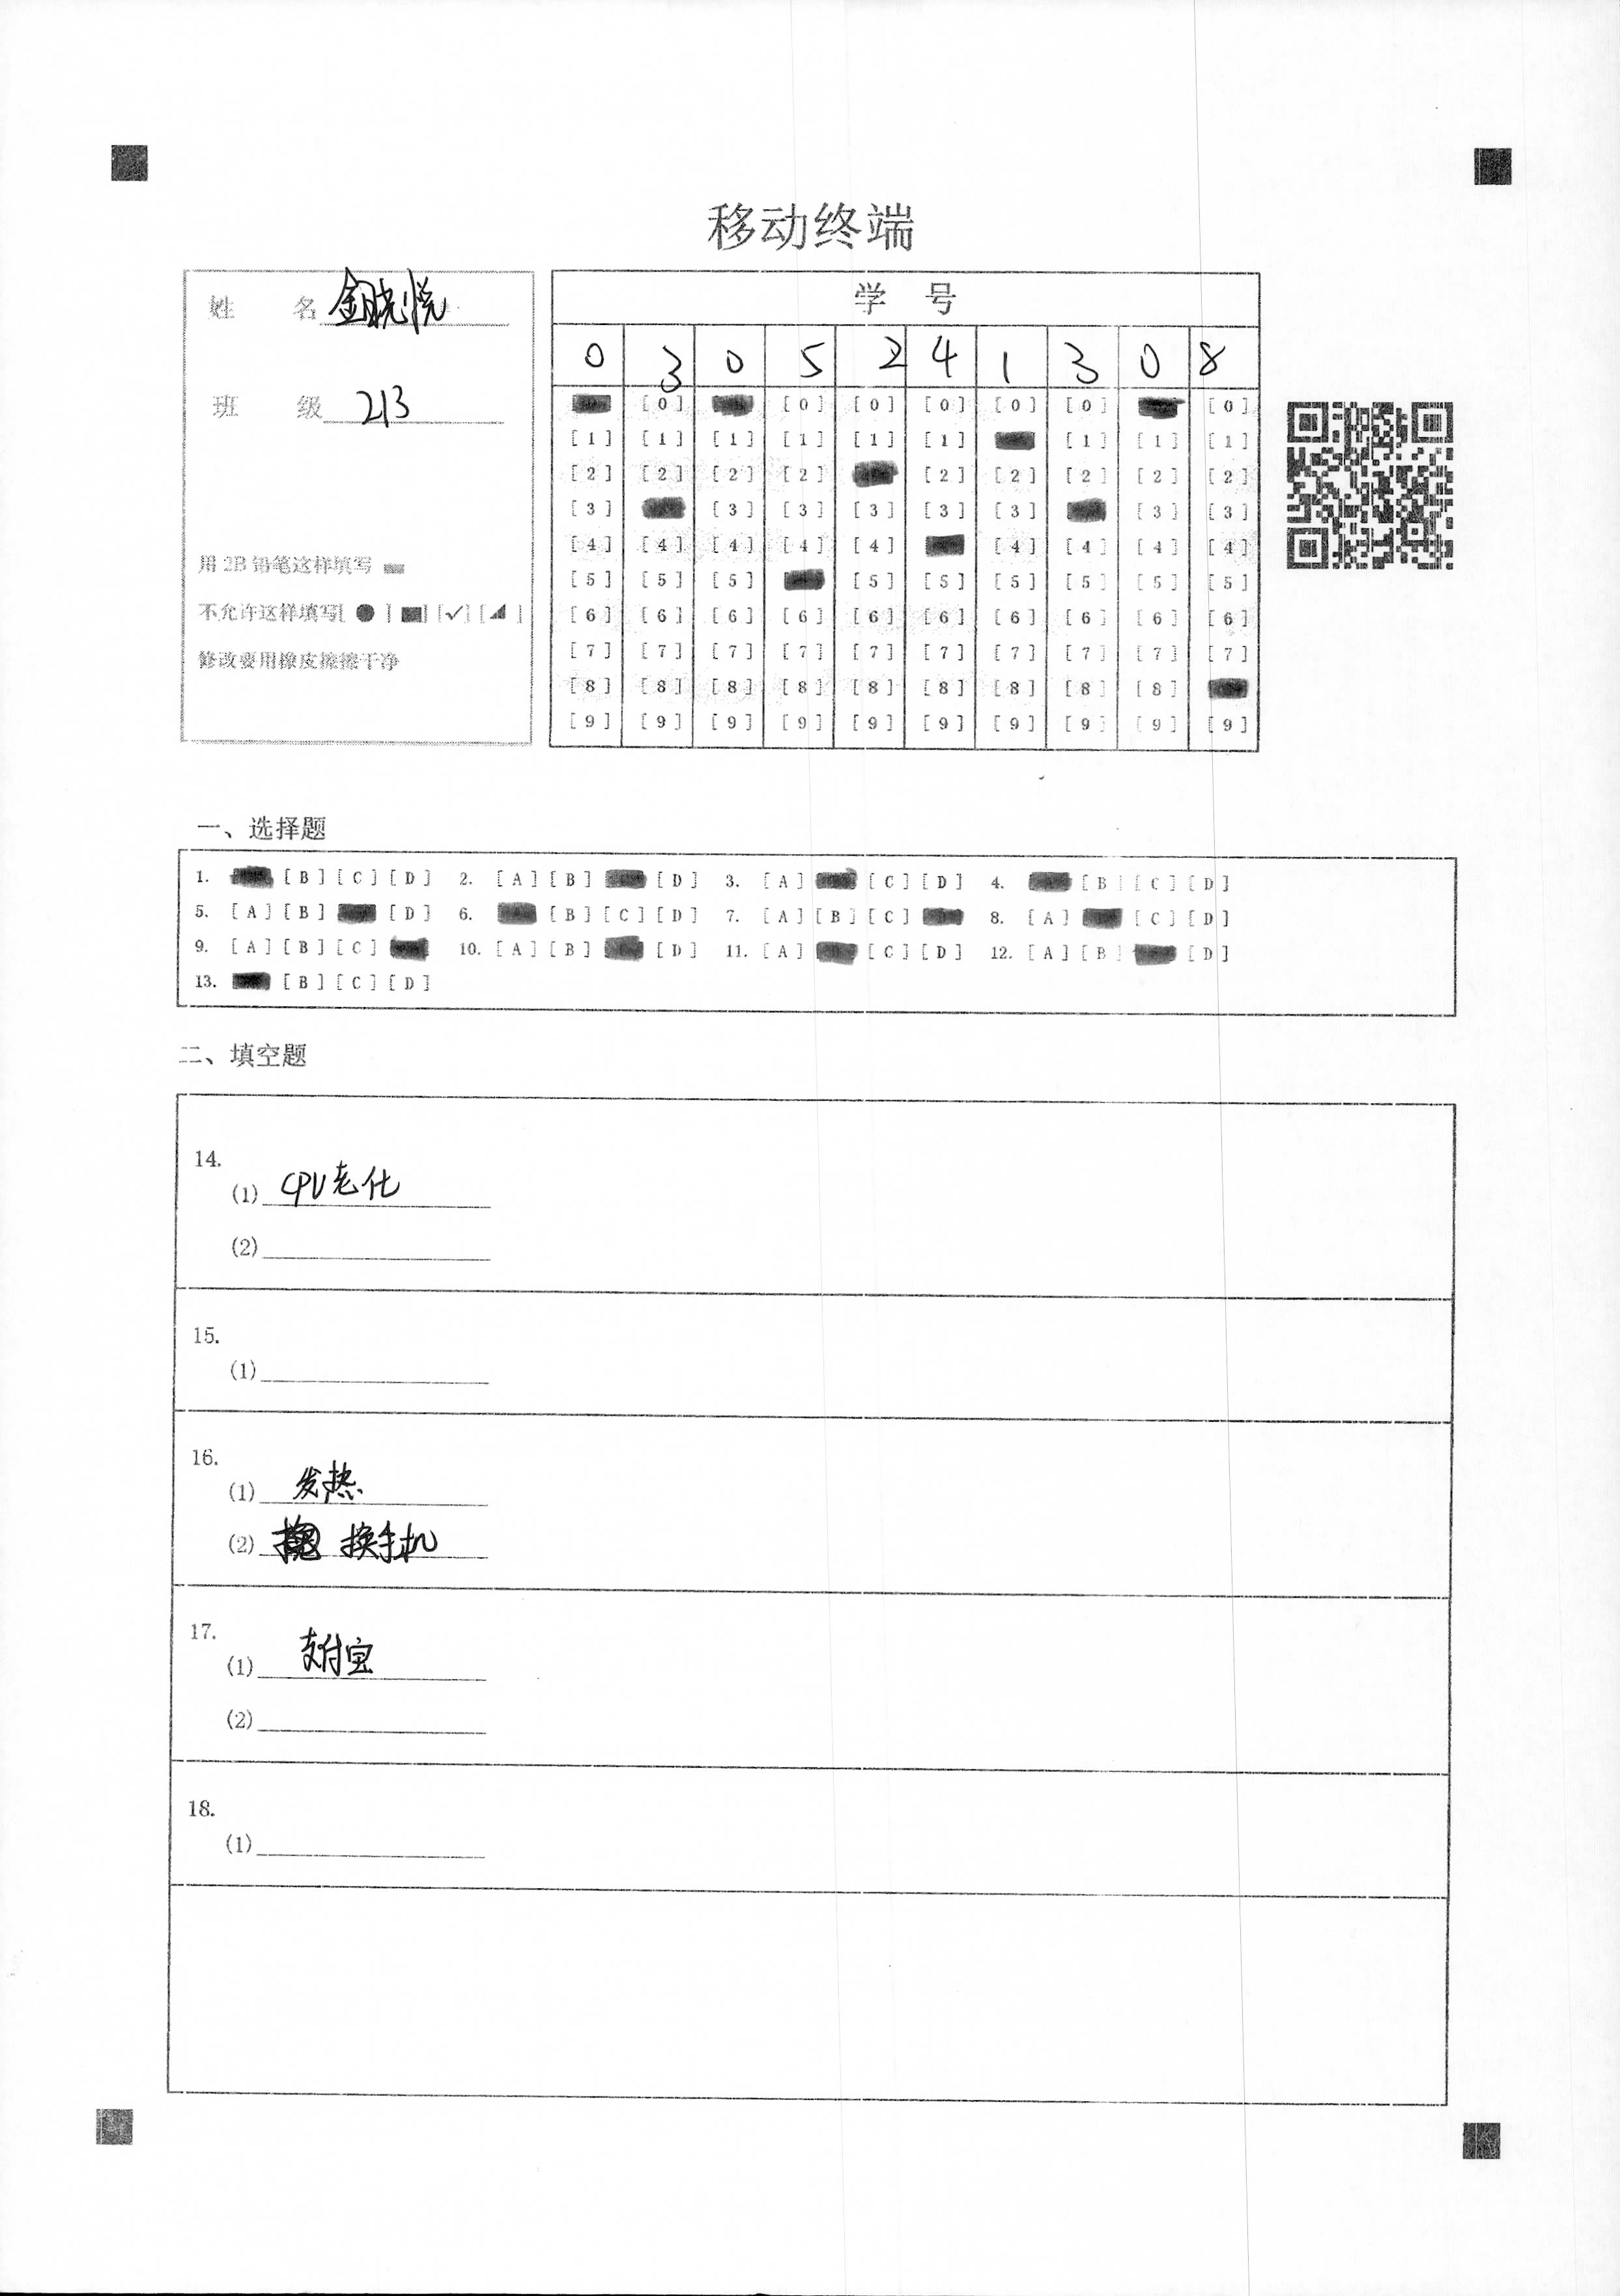 移动终端
姓 名 金晓悦
班 级 213
用 2B 铅笔这样填写
不允许这样填写[ ● ] [■] [✓] [◢ ]
修改要用橡皮擦擦干净
学 号
0 3 0 5 2 4 1 3 0 8
[0] [0] [0] [0] [0] [0] [0]
[1] [1] [1] [1] [1] [1] [1] [1] [1]
[2] [2] [2] [2] [2] [2] [2] [2] [2]
[3] [3] [3] [3] [3] [3] [3] [3]
[4] [4] [4] [4] [4] [4] [4] [4] [4]
[5] [5] [5] [5] [5] [5] [5] [5] [5]
[6] [6] [6] [6] [6] [6] [6] [6] [6] [6]
[7] [7] [7] [7] [7] [7] [7] [7] [7] [7]
[8] [8] [8] [8] [8] [8] [8] [8] [8]
[9] [9] [9] [9] [9] [9] [9] [9] [9] [9]
一、选择题
1. [B] [C] [D] 2. [A] [B] [D] 3. [A] [C] [D] 4. [B] [C] [D]
5. [A] [B] [D] 6. [B] [C] [D] 7. [A] [B] [C] 8. [A] [C] [D]
9. [A] [B] [C] 10. [A] [B] [D] 11. [A] [C] [D] 12. [A] [B] [D]
13. [B] [C] [D]
二、填空题
14.
(1) CPU老化
(2)
15.
(1)
16.
(1) 发热
(2) 换手机
17.
(1) 支付宝
(2)
18.
(1)